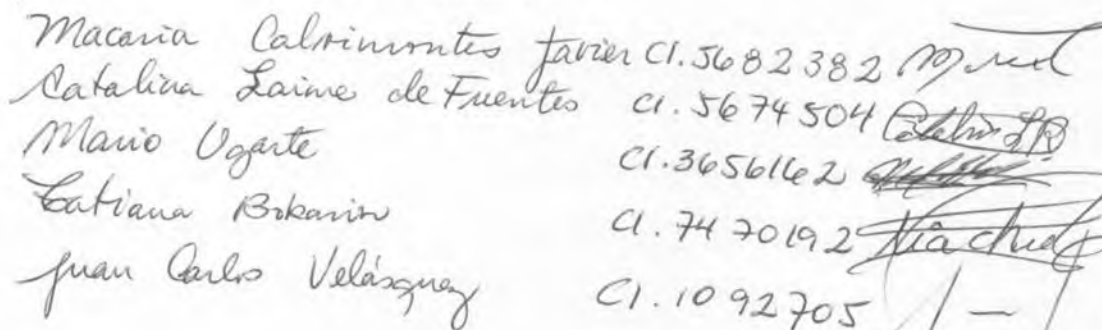 Macaria Calvimontes Javier CI. 5682382
Catalina Laime de Fuentes CI. 5674504
Mario Ugarte CI. 3656162
Tatiana CI. 7470192
Juan Carlos Velásquez CI. 1092705